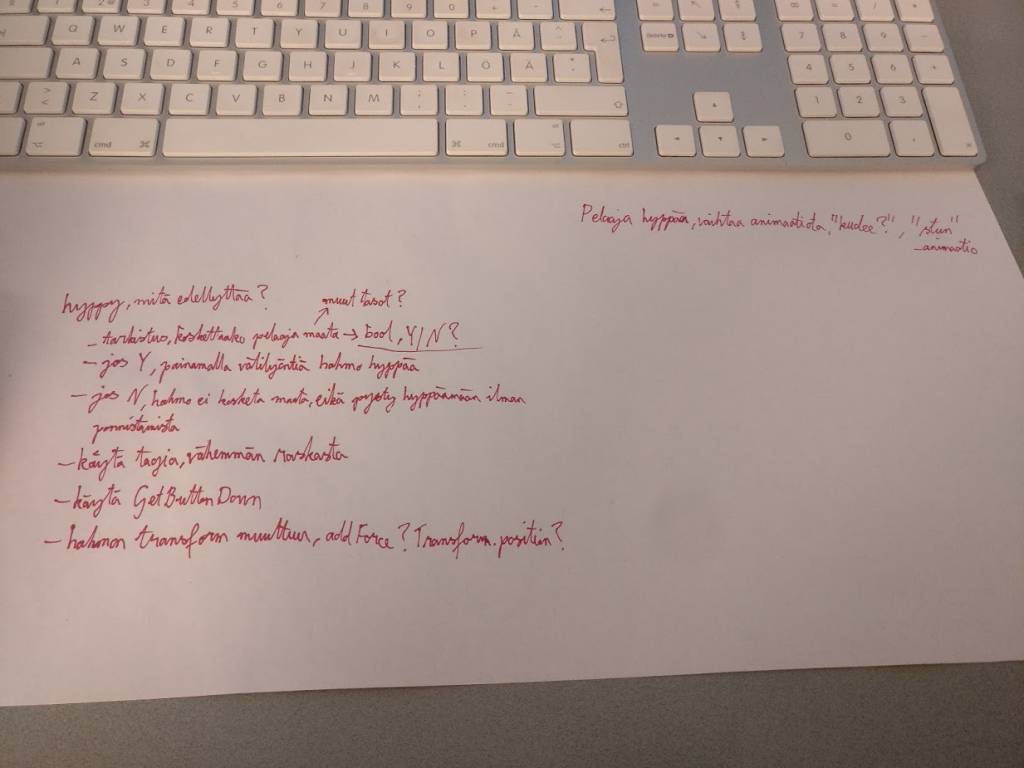 Q W E R T Y U I O P Å
A S D F G H J K L Ö Ä
Z X C V B N M
cmd cmd ctrl
7 8 9
4 5 6
1 2 3
0
Pelaaja hyppää, vaihtaa animaatiota, "kudee?", "stun"
_animaatio
hyppy, mitä edellyttää?
muut tasot?
- tarkistus, koskettaako pelaaja maata → bool, Y/N?
- jos Y, painamalla välilyöntiä hahmo hyppää
- jos N, hahmo ei kosketa maata, eikä pysty hyppäämään ilman
ponnistamista
- käytä tageja, vähemmän raskasta
- käytä GetButtonDown
- hahmon transform muuttuu, addForce? Transform.position?